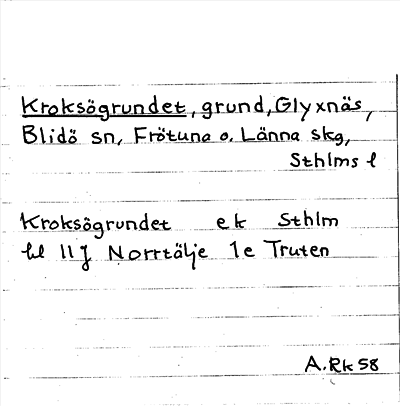 Kroksögrundet, grund, Glyxnäs,
Blidö sn, Frötuna o. Länna skg,
Sthlms l
Kroksögrundet ek Sthlm
bl 11J Norrtälje 1e Truten
A.Rk 58